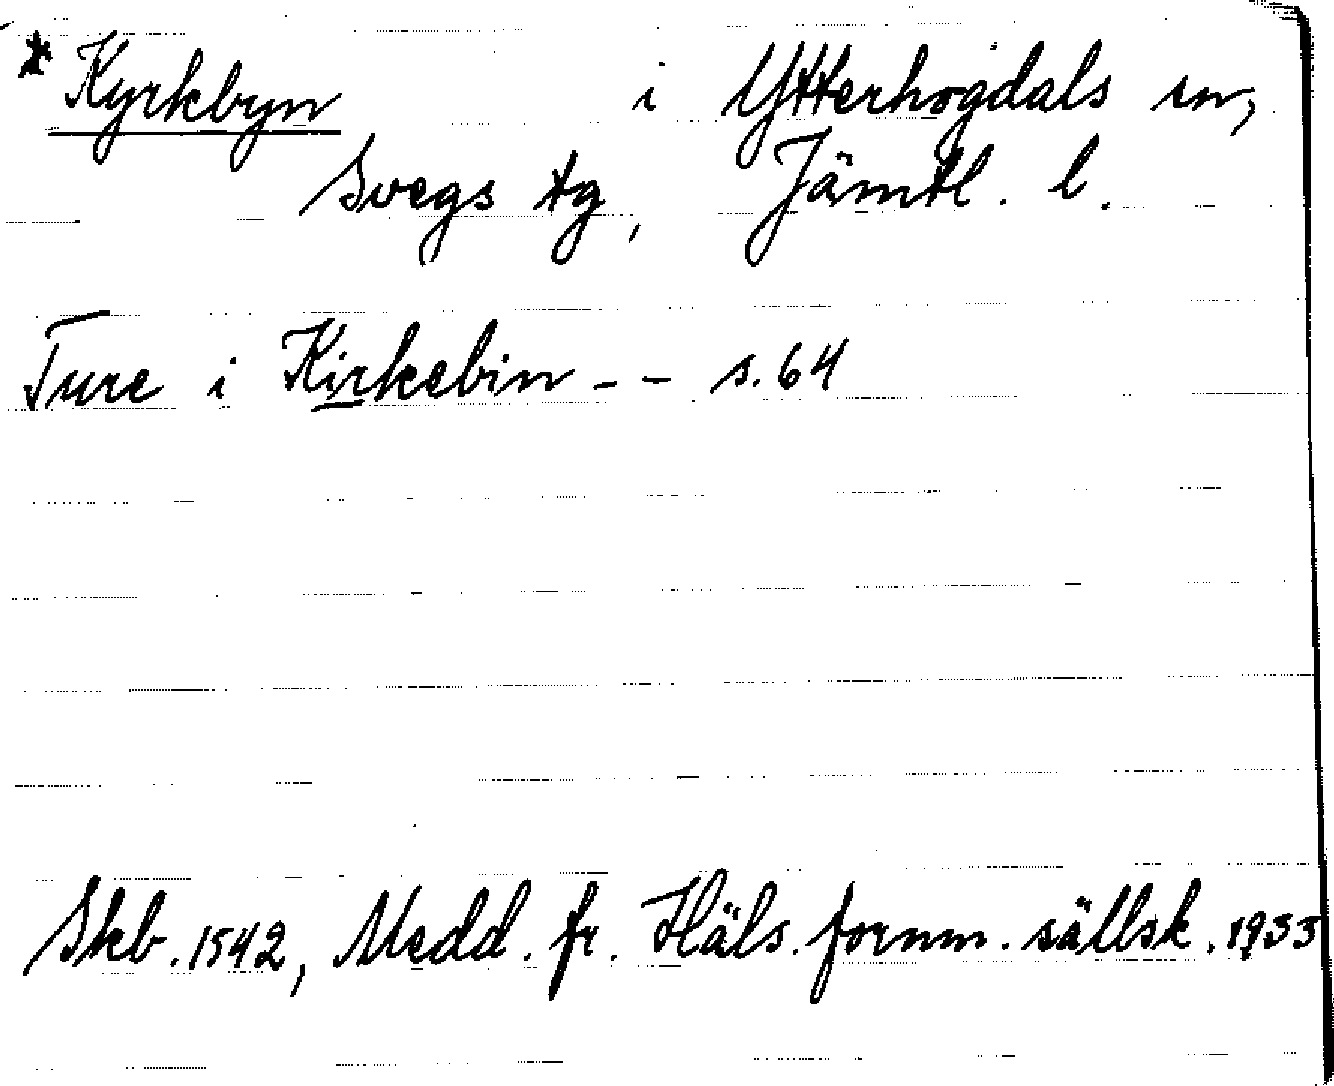 * Kyrkbyn i Ytterhogdals sn,
Svegs tg, Jämtl. l.
Ture i Kirkebin - - s. 64
Skb. 1542, Medd. fr. Häls. fornm. sällsk. 1933